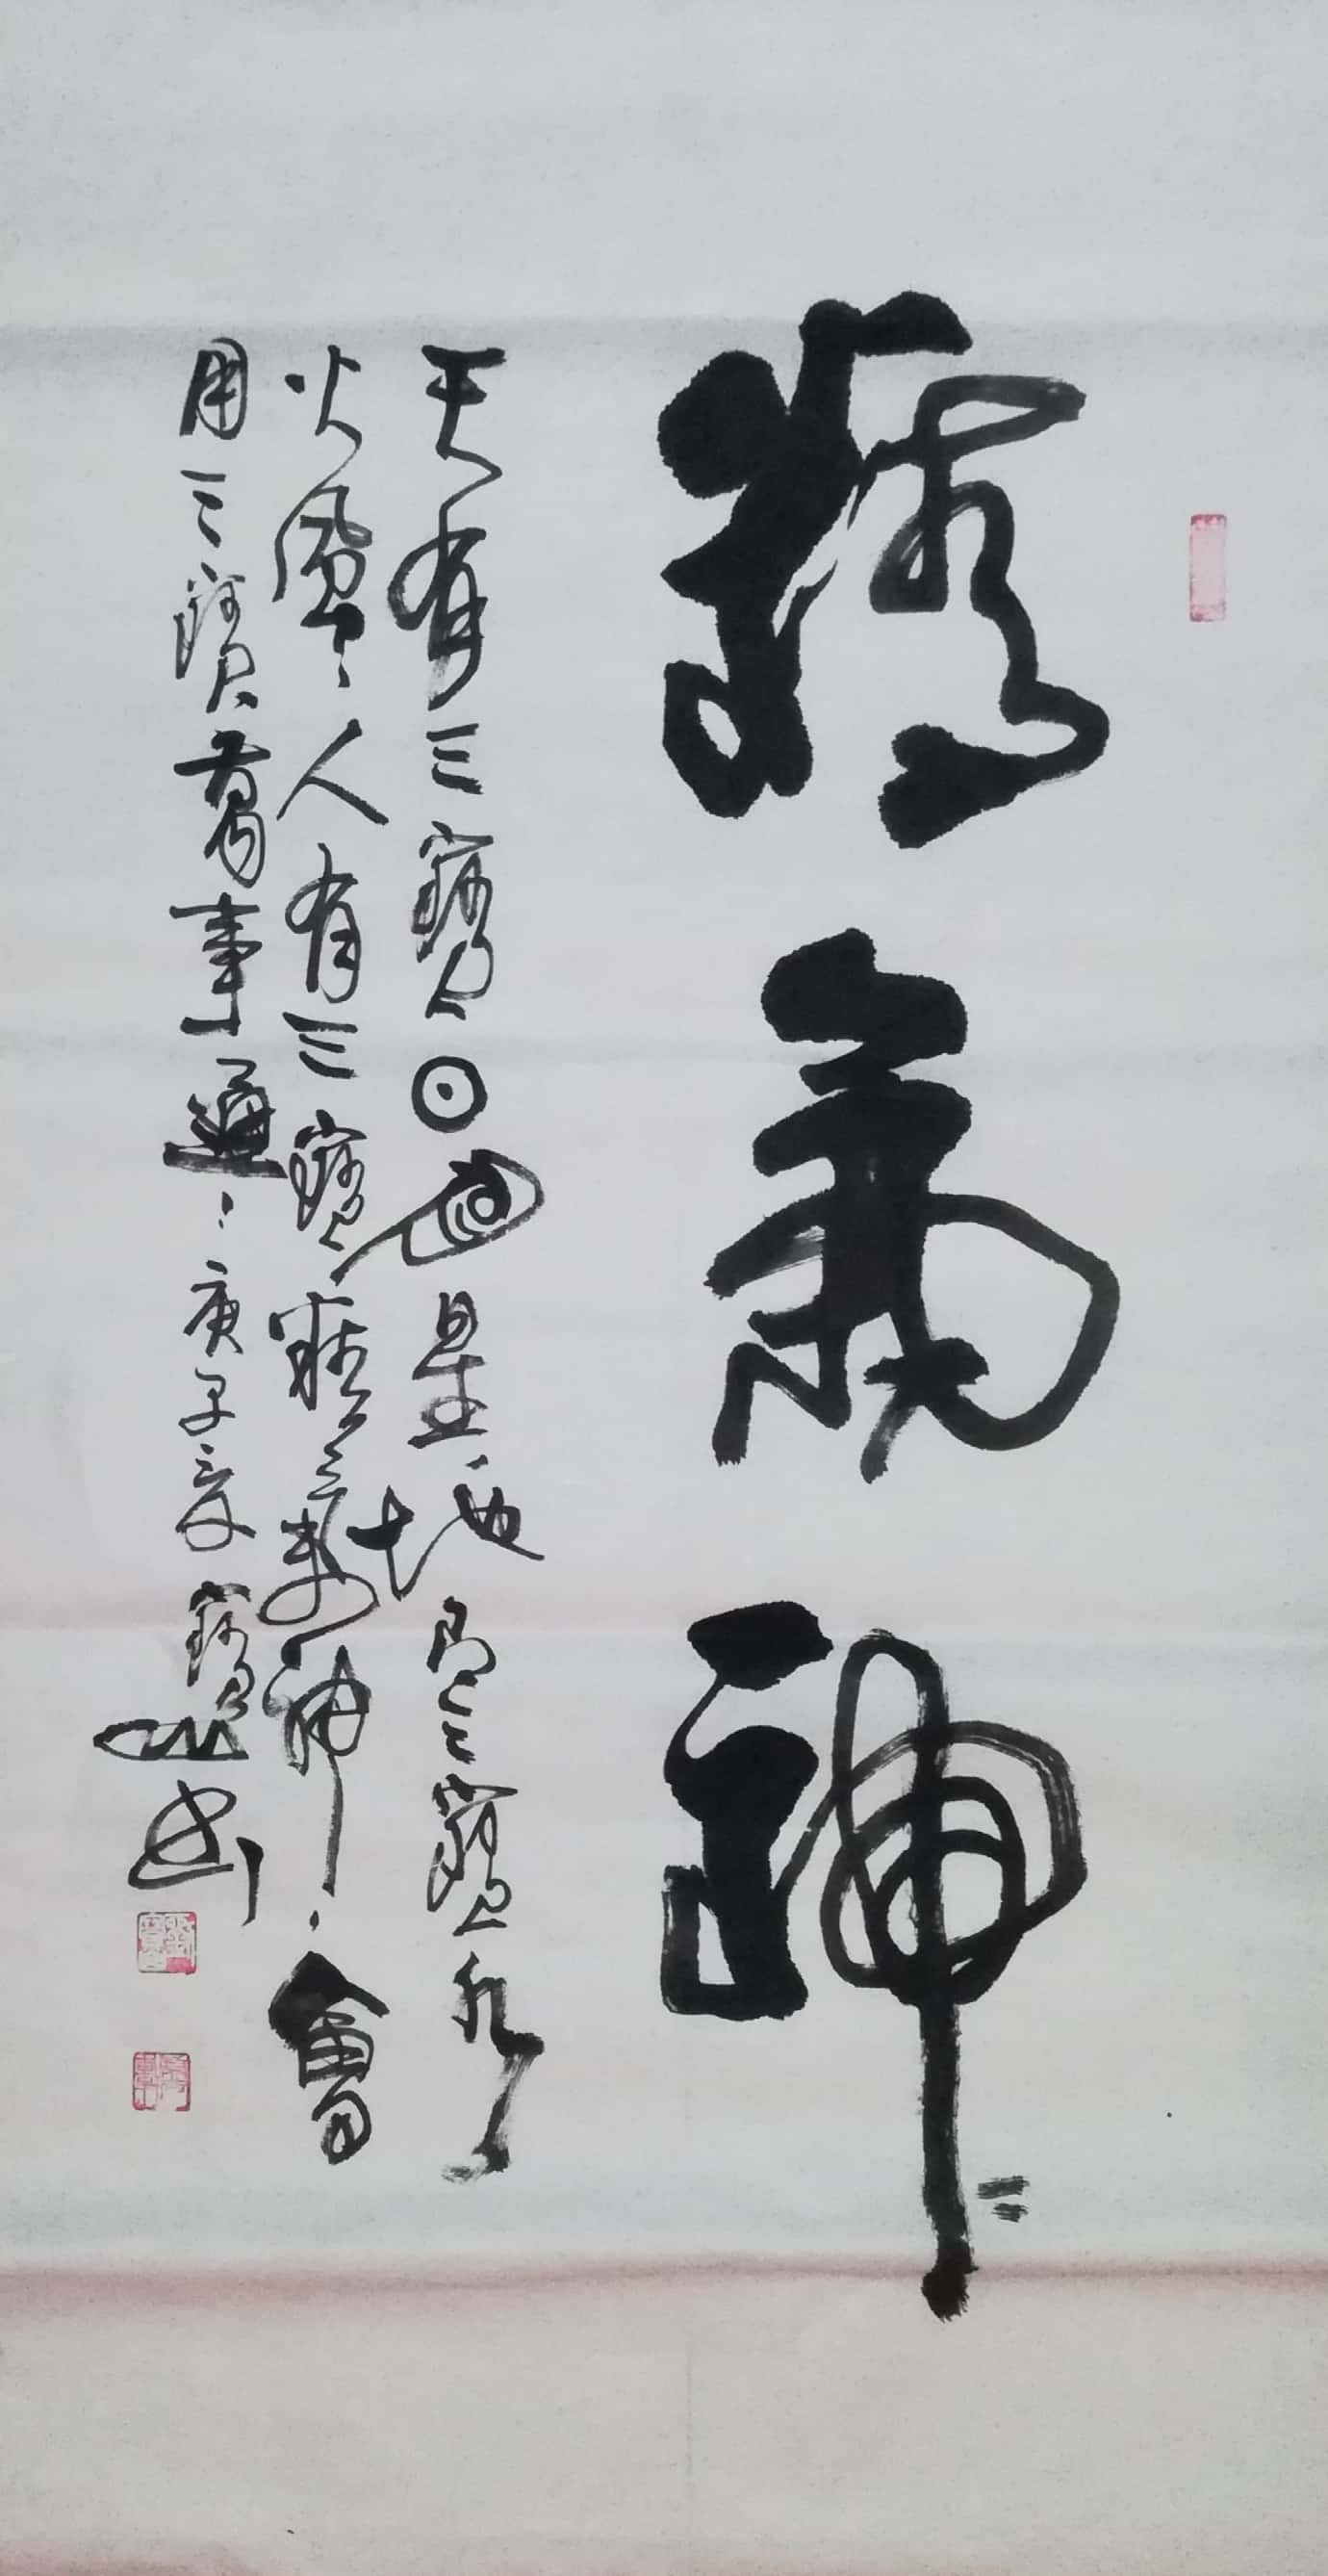 精氣神
天有三寶日月星地有三寶水
火風人有三寶精氣神會
用三寶萬事通庚子寶山书